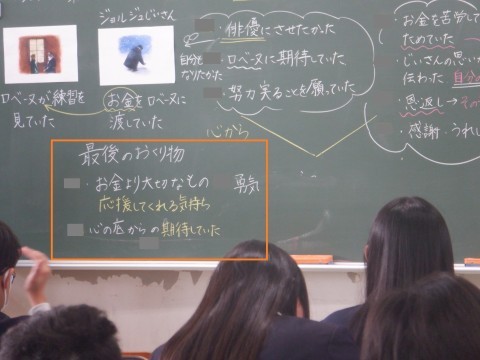 ジョルジュじいさん
ロベーヌが練習を
見ていた
お金をロベーヌに
渡していた
自分も
なりたかった
・俳優にさせたかった
ロベーヌに期待していた
努力実ることを願っていた
心から
・お金を苦労して
ためていた
・じいさんの思いが
伝わった 自分の
・恩返し→
・感謝・うれし
最後のおくり物
・お金より大切なもの 勇気
応援してくれる気持ち
心の底からの期待していた